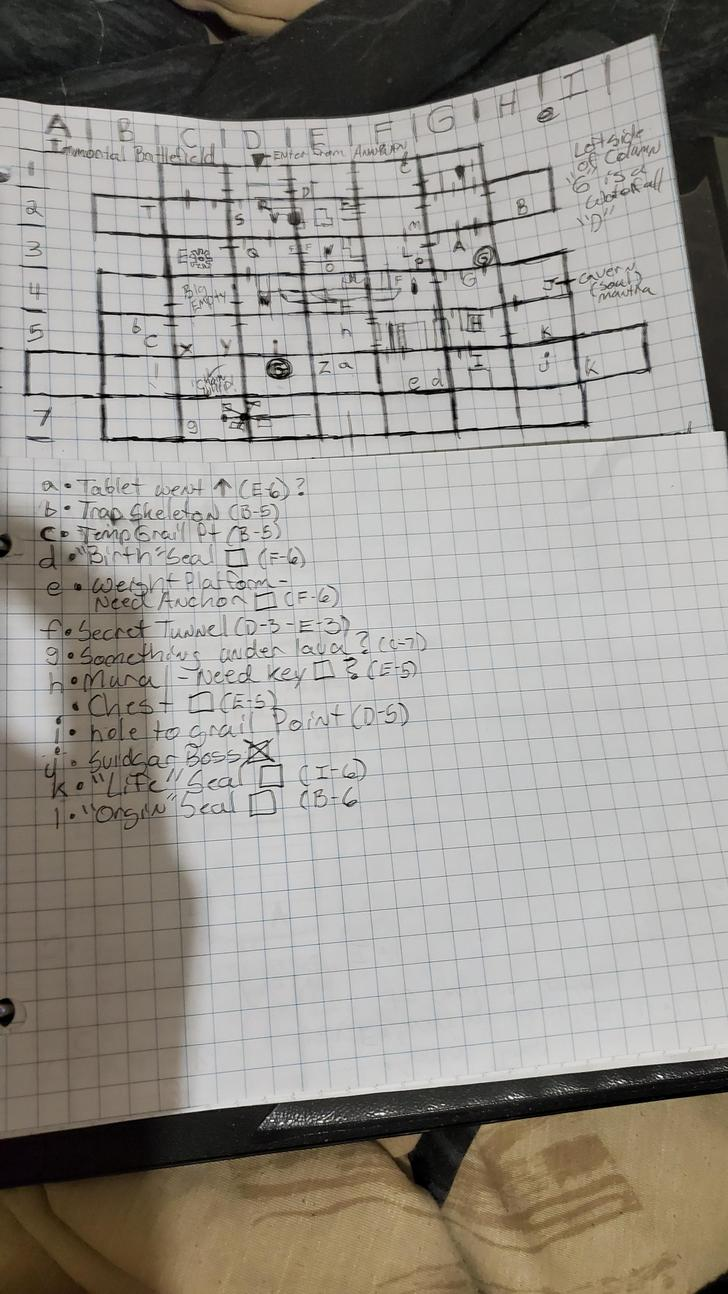 A | B | C | D | E | F | G | H | I |
Immortal Battlefield
Enter From Annwfn
1
2
3
4
5
7
Left side
of Column
"G" is a
Waterfall
"D"
T
S
B
E
Q
A
G
Big
Empty
F
G
J
Cavern
(soul)
mantra
b
C
X
Y
h
H
K
Z a
e d
I
j
K
g
a • Tablet went ↑ (E-6)?
b • Trap Skeleton (B-5)
c • Temp Grail Pt (B-5)
d • "Birth" Seal □ (F-6)
e • Weight Platform -
Need Anchor □ (F-6)
f • Secret Tunnel (D-3 - E-3)
g • Something under lava? (C-7)
h • Mural - Need key □ ? (E-5)
i • Chest □ (E-5)
j • hole to grail Point (D-5)
j • Surdgar Boss ☒
k • "Life" Seal □ (I-6)
l • "Origin" Seal □ (B-6